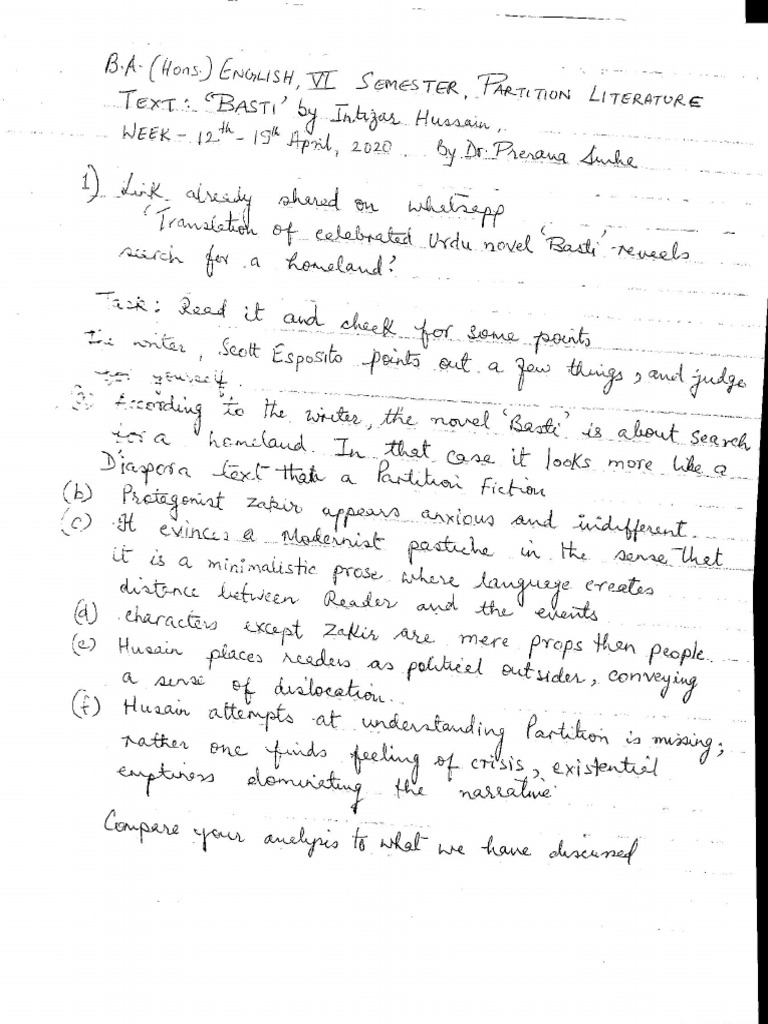 B.A. (Hons.) ENGLISH, VI SEMESTER, PARTITION LITERATURE
TEXT: 'BASTI' by Intizar Hussain,
WEEK - 12th - 19th April, 2020. By Dr. Prerana Sinha
1) Link already shared on whatsapp
'Translation of celebrated Urdu novel 'Basti' reveals
search for a homeland'.
Task: Read it and check for some points
The writer, Scott Esposito points out a few things, and judge
yourself.
According to the writer, the novel 'Basti' is about search
for a homeland. In that case it looks more like a
Diaspora text than a Partition Fiction
(b) Protagonist Zakir appears anxious and indifferent.
(c) It evinces a Modernist pastiche in the sense that
it is a minimalistic prose where language creates
distance between Reader and the events
(d) characters except Zakir are mere props then people.
(e) Husain places readers as political outsider, conveying
a sense of dislocation.
(f) Husain attempts at understanding Partition is missing;
rather one finds feeling of crisis, existential
emptiness dominating the narrative
Compare your analysis to what we have discussed